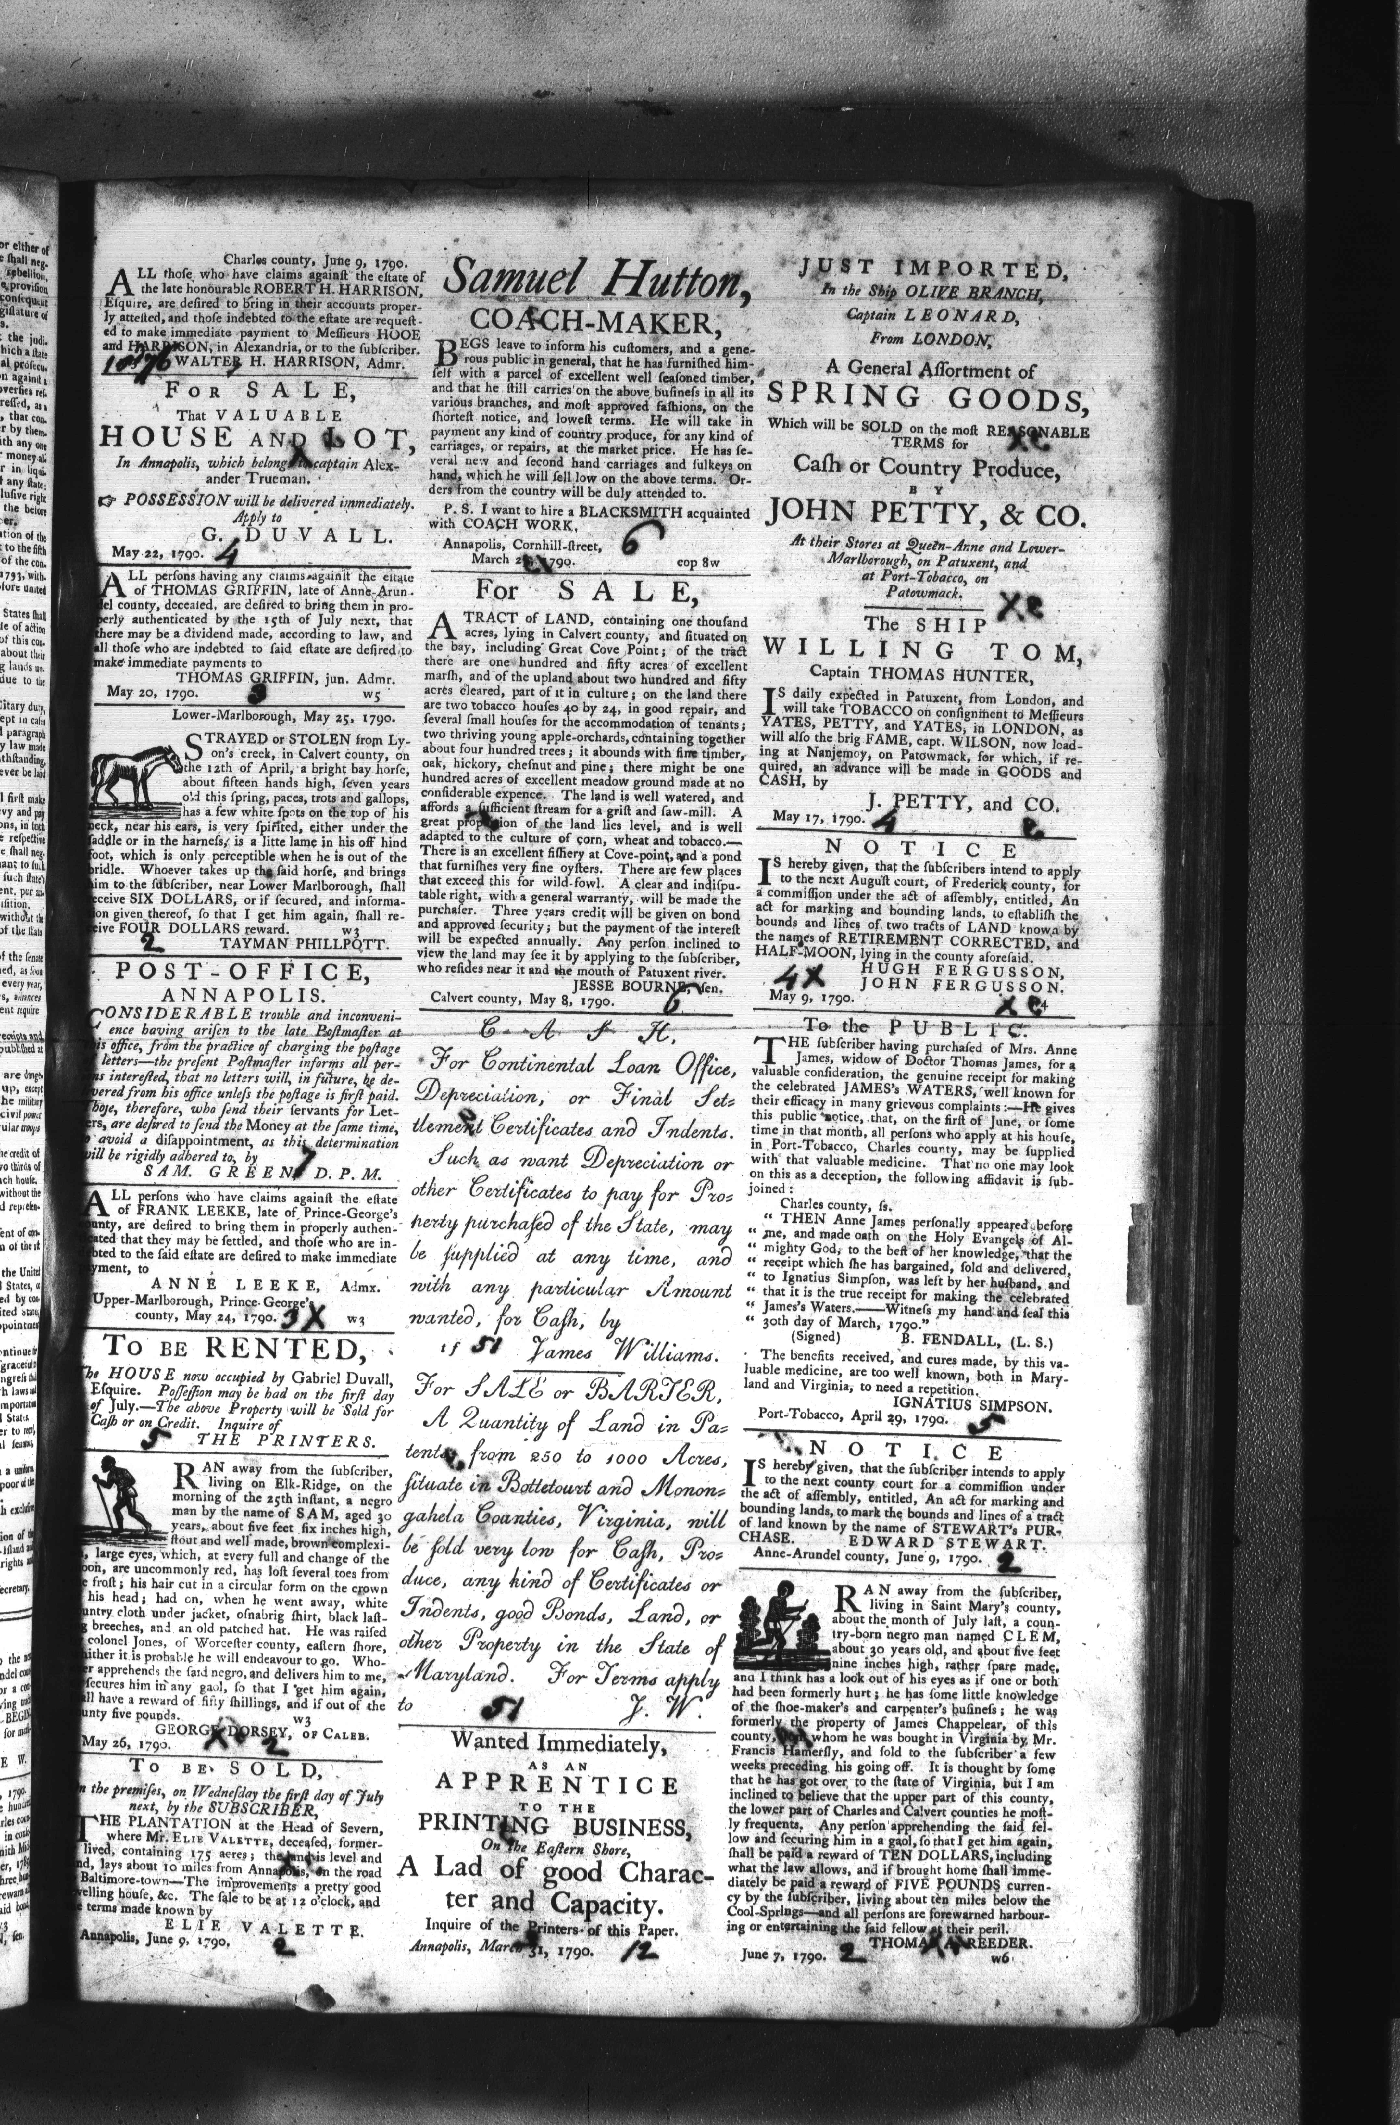 Charles county, June 9, 1790.
ALL thoſe who have claims againſt the eſtate of
the late honourable ROBERT H. HARRISON,
Eſquire, are deſired to bring in their accounts proper-
ly atteſted, and thoſe indebted to the eſtate are requeſt-
ed to make immediate payment to Meſſieurs HOOE
and HARRISON, in Alexandria, or to the ſubſcriber.
WALTER H. HARRISON, Admr.
FOR SALE,
That VALUABLE
HOUSE AND LOT,
In Annapolis, which belongs to captain Alex-
ander Trueman.
☞ POSSESSION will be delivered immediately.
Apply to
G. DUVALL.
May 22, 1790. 4
ALL perſons having any claims againſt the eſtate
of THOMAS GRIFFIN, late of Anne-Arun-
del county, deceaſed, are deſired to bring them in pro-
perly authenticated by the 15th of July next, that
there may be a dividend made, according to law, and
all thoſe who are indebted to ſaid eſtate are deſired to
make immediate payments to
THOMAS GRIFFIN, jun. Admr.
May 20, 1790. 3 w5
Lower-Marlborough, May 25, 1790.
STRAYED or STOLEN from Ly-
on's creek, in Calvert county, on
the 12th of April, a bright bay horſe,
about fifteen hands high, ſeven years
old this ſpring, paces, trots and gallops,
has a few white ſpots on the top of his
neck, near his ears, is very ſpirited, either under the
ſaddle or in the harneſs, is a litte lame in his off hind
foot, which is only perceptible when he is out of the
bridle. Whoever takes up the ſaid horſe, and brings
him to the ſubſcriber, near Lower Marlborough, ſhall
receive SIX DOLLARS, or if ſecured, and informa-
tion given thereof, ſo that I get him again, ſhall re-
ceive FOUR DOLLARS reward. w3
2 TAYMAN PHILLPOTT.
POST-OFFICE,
ANNAPOLIS.
CONSIDERABLE trouble and inconveni-
ence having ariſen to the late Poſtmaſter at
his office, from the practice of charging the poſtage
letters—the preſent Poſtmaſter informs all per-
ons intereſted, that no letters will, in future, be de-
vered from his office unleſs the poſtage is firſt paid.
Thoſe, therefore, who ſend their ſervants for Let-
ers, are deſired to ſend the Money at the ſame time,
avoid a diſappointment, as this determination
will be rigidly adhered to, by
SAM. GREEN, D. P. M.
ALL perſons who have claims againſt the eſtate
of FRANK LEEKE, late of Prince-George's
county, are deſired to bring them in properly authen-
cated that they may be ſettled, and thoſe who are in-
debted to the ſaid eſtate are deſired to make immediate
payment, to
ANNE LEEKE, Admx.
Upper-Marlborough, Prince-George's
county, May 24, 1790. 3X w3
TO BE RENTED,
The HOUSE now occupied by Gabriel Duvall,
Eſquire. Poſſeſſion may be had on the firſt day
of July.—The above Property will be Sold for
Caſh or on Credit. Inquire of
5 THE PRINTERS.
RAN away from the ſubſcriber,
living on Elk-Ridge, on the
morning of the 25th inſtant, a negro
man by the name of SAM, aged 30
years, about five feet ſix inches high,
ſtout and well made, brown complexi-
large eyes, which, at every full and change of the
moon, are uncommonly red, has loſt ſeveral toes from
froſt; his hair cut in a circular form on the crown
his head; had on, when he went away, white
country cloth under jacket, oſnabrig ſhirt, black laſt-
breeches, and an old patched hat. He was raiſed
colonel Jones, of Worceſter county, eaſtern ſhore,
whither it is probable he will endeavour to go. Who-
ever apprehends the ſaid negro, and delivers him to me,
ſecures him in any gaol, ſo that I get him again,
ſhall have a reward of fifty ſhillings, and if out of the
county five pounds. w3
GEORGE DORSEY, OF CALEB.
May 26, 1790. 2
TO BE SOLD,
on the premiſes, on Wedneſday the firſt day of July
next, by the SUBSCRIBER,
THE PLANTATION at the Head of Severn,
where Mr. ELIE VALETTE, deceaſed, former-
lived, containing 175 acres; the land is level and
lays about 10 miles from Annapolis, on the road
Baltimore-town—The improvements a pretty good
dwelling houſe, &c. The ſale to be at 12 o'clock, and
terms made known by
ELIE VALETTE.
Annapolis, June 9, 1790. 2
Samuel Hutton,
COACH-MAKER,
BEGS leave to inform his cuſtomers, and a gene-
rous public in general, that he has furniſhed him-
ſelf with a parcel of excellent well ſeaſoned timber,
and that he ſtill carries on the above buſineſs in all its
various branches, and moſt approved faſhions, on the
ſhorteſt notice, and loweſt terms. He will take in
payment any kind of country produce, for any kind of
carriages, or repairs, at the market price. He has ſe-
veral new and ſecond hand carriages and ſulkeys on
hand, which he will ſell low on the above terms. Or-
ders from the country will be duly attended to.
P. S. I want to hire a BLACKSMITH acquainted
with COACH WORK.
Annapolis, Cornhill-ſtreet, 6
March 1790. eop 8w
For SALE,
A TRACT of LAND, containing one thouſand
acres, lying in Calvert county, and ſituated on
the bay, including Great Cove Point; of the tract
there are one hundred and fifty acres of excellent
marſh, and of the upland about two hundred and fifty
acres cleared, part of it in culture; on the land there
are two tobacco houſes 40 by 24, in good repair, and
ſeveral ſmall houſes for the accommodation of tenants;
two thriving young apple-orchards, containing together
about four hundred trees; it abounds with fine timber,
oak, hickory, cheſnut and pine; there might be one
hundred acres of excellent meadow ground made at no
conſiderable expence. The land is well watered, and
affords a ſufficient ſtream for a griſt and ſaw-mill. A
great proportion of the land lies level, and is well
adapted to the culture of corn, wheat and tobacco.—
There is an excellent fiſhery at Cove-point, and a pond
that furniſhes very fine oyſters. There are few places
that exceed this for wild-fowl. A clear and indiſpu-
table right, with a general warranty, will be made the
purchaſer. Three years credit will be given on bond
and approved ſecurity; but the payment of the intereſt
will be expected annually. Any perſon inclined to
view the land may ſee it by applying to the ſubſcriber,
who reſides near it and the mouth of Patuxent river.
JESSE BOURNE, ſen.
Calvert county, May 8, 1790. 6
CASH,
For Continental Loan Office,
Depreciation, or Final Set-
tlement Certificates and Indents.
Such as want Depreciation or
other Certificates to pay for Pro-
perty purchaſed of the State, may
be ſupplied at any time, and
with any particular Amount
wanted, for Caſh, by
tf 51 James Williams.
For SALE or BARTER,
A Quantity of Land in Pa-
tents, from 250 to 1000 Acres,
ſituate in Bottetourt and Monon-
gahela Counties, Virginia, will
be ſold very low for Caſh, Pro-
duce, any kind of Certificates or
Indents, good Bonds, Land, or
other Property in the State of
Maryland. For Terms apply
to 51 J. W.
Wanted Immediately,
AS AN
APPRENTICE
TO THE
PRINTING BUSINESS,
On the Eaſtern Shore,
A Lad of good Charac-
ter and Capacity.
Inquire of the Printers of this Paper.
Annapolis, March 31, 1790. 12
JUST IMPORTED,
In the Ship OLIVE BRANCH,
Captain LEONARD,
From LONDON,
A General Aſſortment of
SPRING GOODS,
Which will be SOLD on the moſt REASONABLE
TERMS for
Caſh or Country Produce,
BY
JOHN PETTY, & CO.
At their Stores at Queen-Anne and Lower-
Marlborough, on Patuxent, and
at Port-Tobacco, on
Patowmack.
The SHIP
WILLING TOM,
Captain THOMAS HUNTER,
IS daily expected in Patuxent, from London, and
will take TOBACCO on conſignment to Meſſieurs
YATES, PETTY, and YATES, in LONDON, as
will alſo the brig FAME, capt. WILSON, now load-
ing at Nanjemoy, on Patowmack, for which, if re-
quired, an advance will be made in GOODS and
CASH, by
J. PETTY, and CO.
May 17, 1790. 4
NOTICE
IS hereby given, that the ſubſcribers intend to apply
to the next Auguſt court, of Frederick county, for
a commiſſion under the act of aſſembly, entitled, An
act for marking and bounding lands, to eſtabliſh the
bounds and lines of two tracts of LAND known by
the names of RETIREMENT CORRECTED, and
HALF-MOON, lying in the county aforeſaid.
4X HUGH FERGUSSON,
JOHN FERGUSSON.
May 9, 1790.
To the PUBLIC.
THE ſubſcriber having purchaſed of Mrs. Anne
James, widow of Doctor Thomas James, for a
valuable conſideration, the genuine receipt for making
the celebrated JAMES's WATERS, well known for
their efficacy in many grievous complaints:—He gives
this public notice, that, on the firſt of June, or ſome
time in that month, all perſons who apply at his houſe,
in Port-Tobacco, Charles county, may be ſupplied
with that valuable medicine. That no one may look
on this as a deception, the following affidavit is ſub-
joined:
Charles county, ſs.
" THEN Anne James perſonally appeared before
" me, and made oath on the Holy Evangels of Al-
" mighty God, to the beſt of her knowledge, that the
" receipt which ſhe has bargained, ſold and delivered,
" to Ignatius Simpſon, was left by her huſband, and
" that it is the true receipt for making the celebrated
" James's Waters.——Witneſs my hand and ſeal this
" 30th day of March, 1790."
(Signed) B. FENDALL, (L. S.)
The benefits received, and cures made, by this va-
luable medicine, are too well known, both in Mary-
land and Virginia, to need a repetition.
IGNATIUS SIMPSON.
Port-Tobacco, April 29, 1790. 5
NOTICE
IS hereby given, that the ſubſcriber intends to apply
to the next county court for a commiſſion under
the act of aſſembly, entitled, An act for marking and
bounding lands, to mark the bounds and lines of a tract
of land known by the name of STEWART's PUR-
CHASE. EDWARD STEWART.
Anne-Arundel county, June 9, 1790. 2
RAN away from the ſubſcriber,
living in Saint Mary's county,
about the month of July laſt, a coun-
try-born negro man named CLEM,
about 30 years old, and about five feet
nine inches high, rather ſpare made,
and I think has a look out of his eyes as if one or both
had been formerly hurt; he has ſome little knowledge
of the ſhoe-maker's and carpenter's buſineſs; he was
formerly the property of James Chappelear, of this
county, of whom he was bought in Virginia by Mr.
Francis Hamerſly, and ſold to the ſubſcriber a few
weeks preceding his going off. It is thought by ſome
that he has got over to the ſtate of Virginia, but I am
inclined to believe that the upper part of this county,
the lower part of Charles and Calvert counties he moſt-
ly frequents. Any perſon apprehending the ſaid fel-
low and ſecuring him in a gaol, ſo that I get him again,
ſhall be paid a reward of TEN DOLLARS, including
what the law allows, and if brought home ſhall imme-
diately be paid a reward of FIVE POUNDS curren-
cy by the ſubſcriber, living about ten miles below the
Cool-Springs—and all perſons are forewarned harbour-
ing or entertaining the ſaid fellow at their peril.
THOMAS A. REEDER.
June 7, 1790. 2 w6